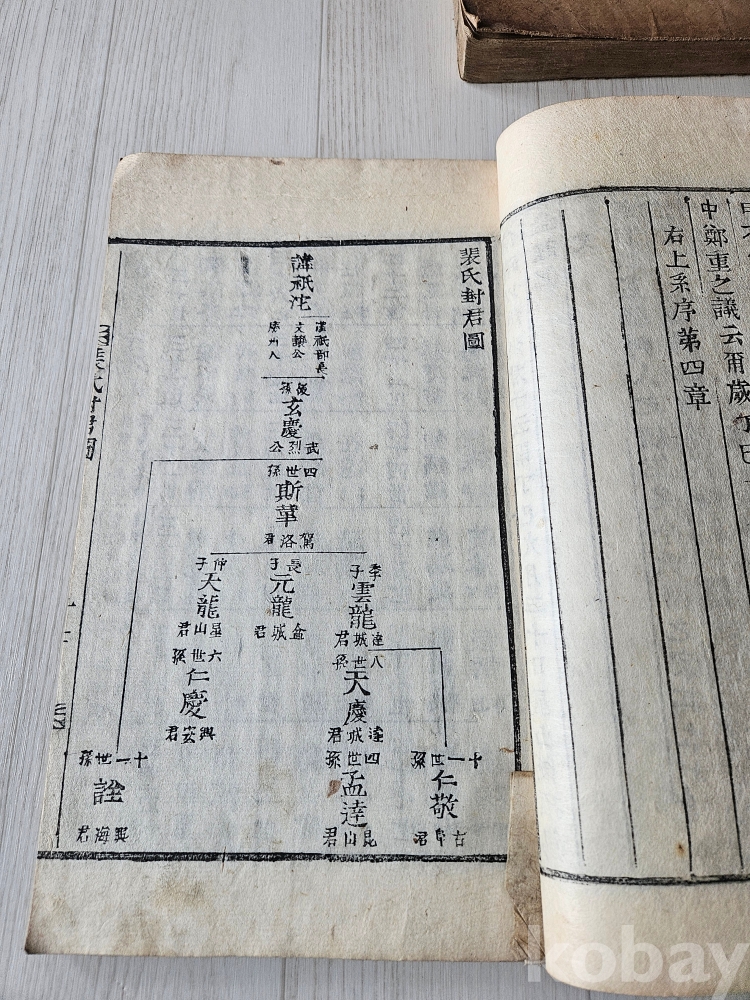 中鄭重之議云爾歲丁巳
右上系序第四章
裴氏封君圖
諱祇沱
漢祇部長
文襄公
慶州人
後孫
玄慶
武烈公
四世孫
斯華
駕洛君
季子
雲龍
達城君
長子
元龍
盆城君
仲子
天龍
星山君
八世孫
天慶
達城君
六世孫
仁慶
興安君
十一世孫
仁敬
古阜君
四世孫
孟達
昆山君
十一世孫
詮
興海君
裴氏封君圖
kobay